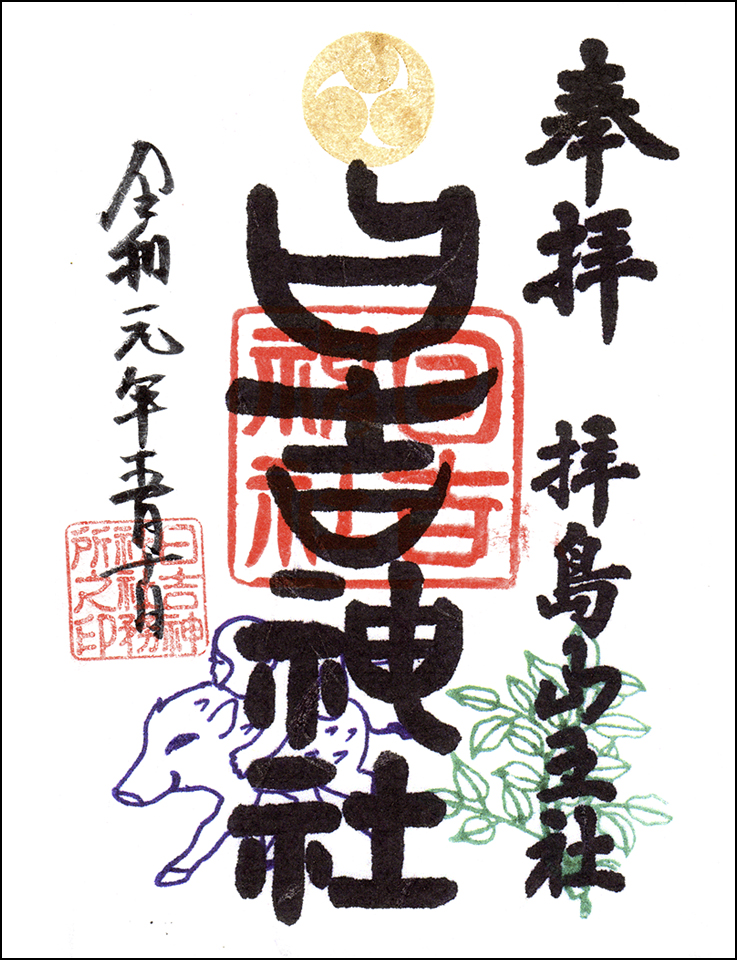 奉拝
拝島山王社
日吉神社
日吉神社
令和元年五月十一日
日吉神
社社務
所之印